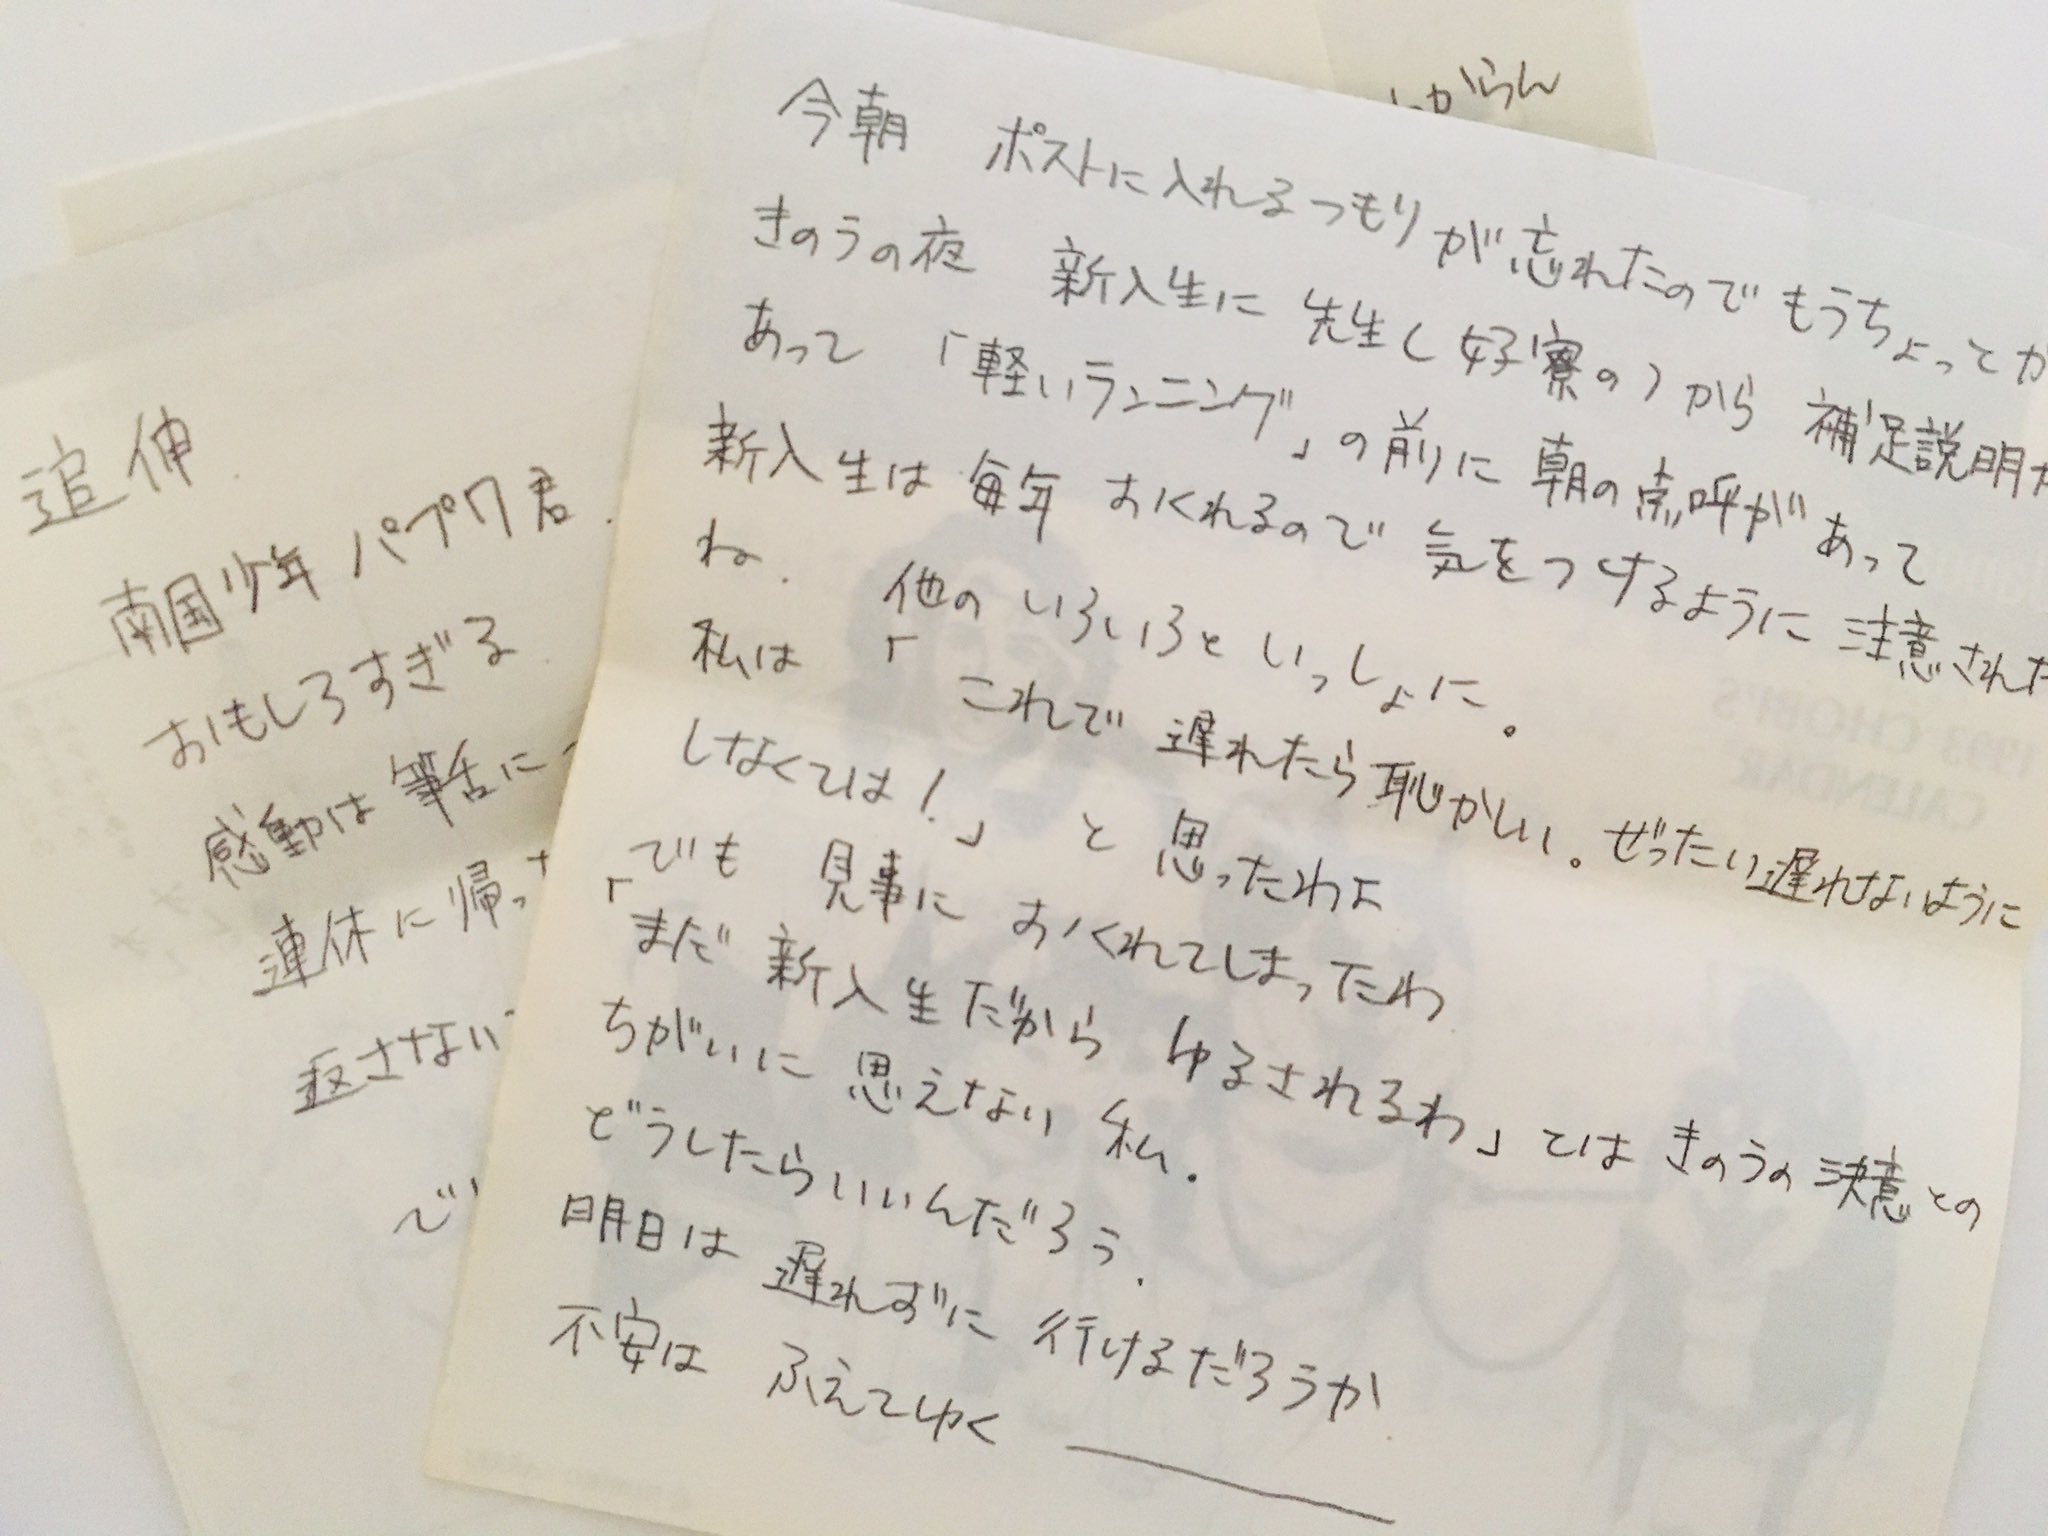 今朝 ポストに入れるつもりが忘れたのでもうちょっとか
きのうの夜 新入生に先生(女子寮の)から補足説明が
あって 「軽いランニング」の前に朝の点呼があって
新入生は毎年おくれるので気をつけるように注意された
ね. 他のいろいろといっしょに。
私は「これで遅れたら恥かしい。ぜったい遅れないように
しなくては!」と思ったわよ
でも 見事におくれてしまったわ
「まだ新入生だからゆるされるわ」とはきのうの決意との
ちがいに思えない私.
どうしたらいいんだろう.
明日は遅れずに行けるだろうか
不安はふえてゆく
追伸.
南国少年パプワ君.
おもしろすぎる
感動は筆舌に
連休に帰っ
返さない
で
からん
1993 CHOBI'S
CALENDAR